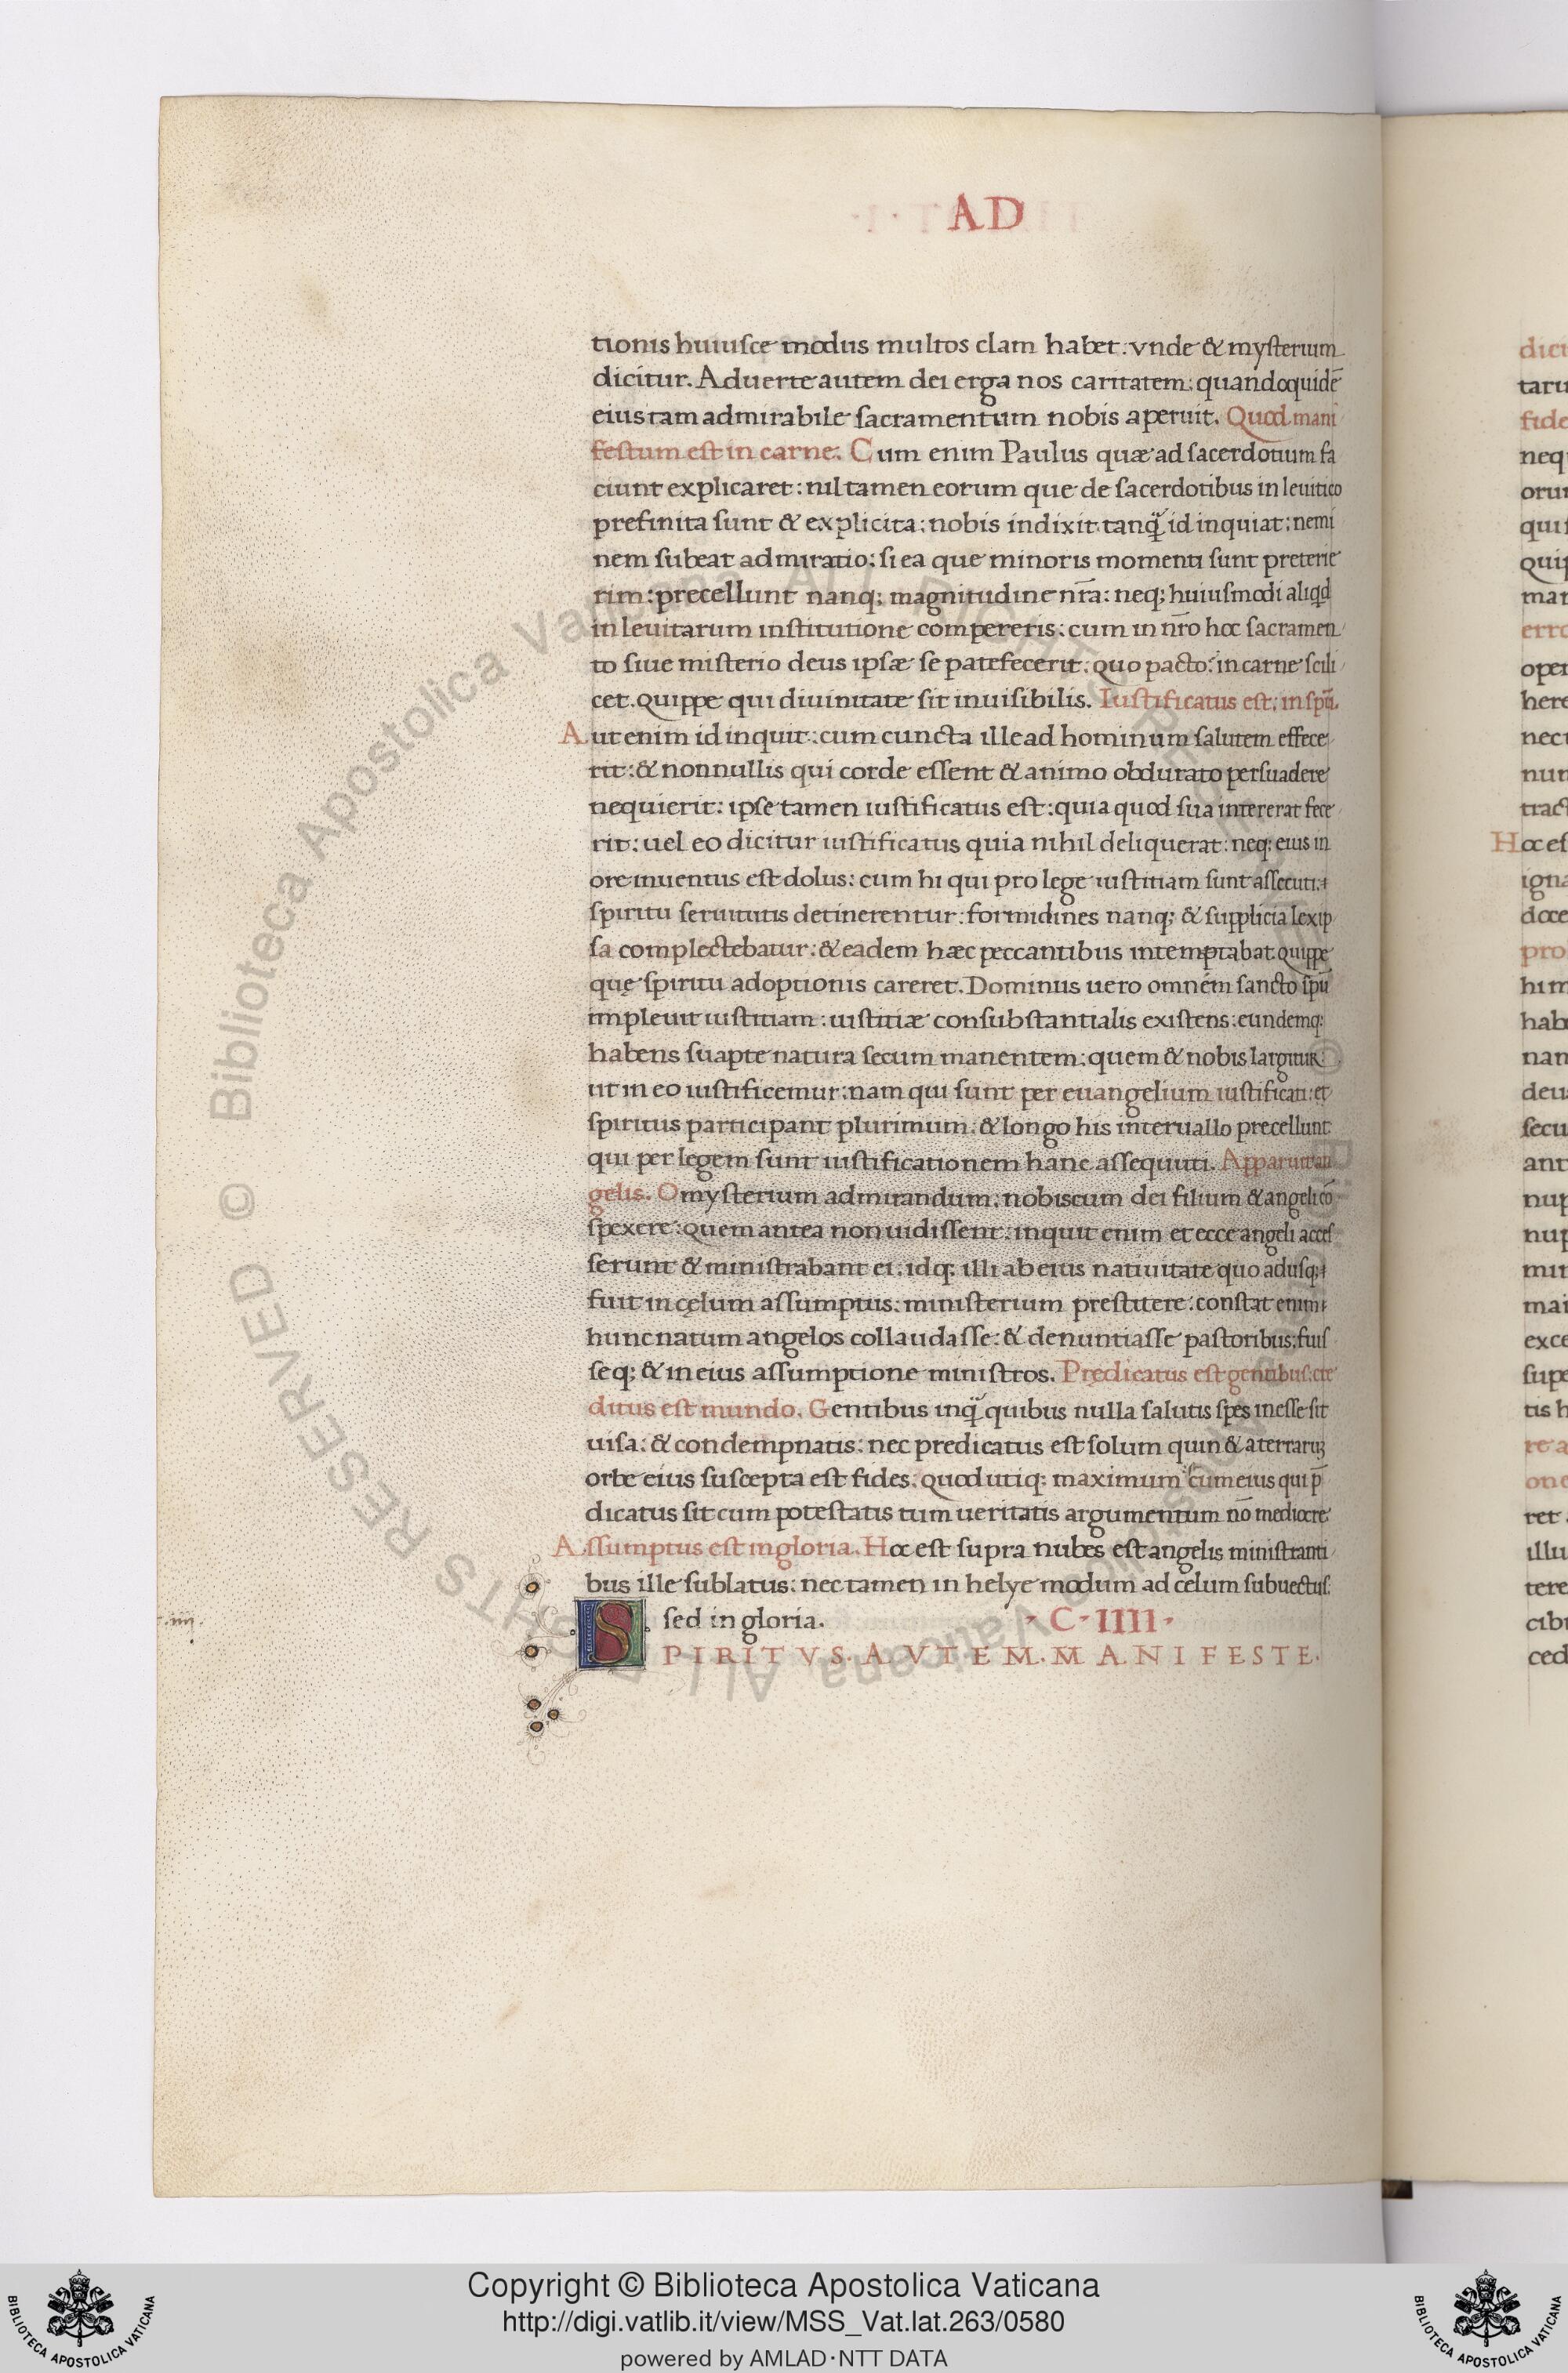 AD
tionis huiusce modus multos clam habet. vnde & mysterium
dicitur. Aduerte autem dei erga nos caritatem: quandoquidē
eius tam admirabile sacramentum nobis aperuit. Quod mani
festum est in carne. Cum enim Paulus quæ ad sacerdotium fa
ciunt explicaret: nil tamen eorum que de sacerdotibus in leuitico
prefinita sunt & explicita: nobis indixit. tanq̃ id inquiat: nemi
nem subeat admiratio: si ea que minoris momenti sunt preterie
rim: precellunt nanq; magnitudine nr̄a: neq; huiusmodi aliqd
in leuitarum institutione compereris: cum in nr̄o hoc sacramen
to siue misterio deus ipsæ se patefecerit. quo pacto: in carne scili
cet. quippe qui diuinitate sit inuisibilis. Iustificatus est: in spū.
Aut enim id inquit: cum cuncta ille ad hominum salutem effece
rit: & nonnullis qui corde essent & animo obdurato persuadere
nequierit: ipse tamen iustificatus est: quia quod sua intererat fece
rit: uel eo dicitur iustificatus quia nihil deliquerat: neq; eius in
ore inuentus est dolus: cum hi qui pro lege iustitiam sunt assecuti:
spiritu seruitutis detinerentur: formidines nanq; & supplicia lex ip
sa complectebatur: & eadem hæc peccantibus intemptabat. quippe
quę spiritu adoptionis careret. Dominus uero omnem sancto spū
impleuit iustitiam: iustitiæ consubstantialis existens: eundemq;
habens suapte natura secum manentem: quem & nobis largitur:
ut in eo iustificemur: nam qui sunt per euangelium iustificati: et
spiritus participant plurimum: & longo his interuallo precellunt
qui per legem sunt iustificationem hanc assequuti. Apparuit an
gelis. O mysterium admirandum: nobiscum dei filium & angeli cō
spexere: quem antea non uidissent: inquit enim et ecce angeli acces
serunt & ministrabant ei: idq; illi ab eius natiuitate quo adusq;
fuit in cęlum assumptus: ministerium prestitere: constat enim
hunc natum angelos collaudasse: & denuntiasse pastoribus: fuis
seq; & in eius assumptione ministros. Prędicatus est gentibus: cre
ditus est mundo. Gentibus inq̃ quibus nulla salutis spes inesse sit
uisa: & condempnatis: nec predicatus est solum quin & a terrarꝫ
orbe eius suscepta est fides. quod utiq; maximum cum eius qui p̄
dicatus sit cum potestatis tum ueritatis argumentum nō mediocre
Assumptus est in gloria. Hoc est supra nubes est angelis ministranti
bus ille sublatus: nec tamen in helye modum ad celum subuectus:
sed in gloria. C·IIII·
SPIRITVS. AVTEM. MANIFESTE.
.iiij.
Copyright © Biblioteca Apostolica Vaticana
http://digi.vatlib.it/view/MSS_Vat.lat.263/0580
powered by AMLAD·NTT DATA
BIBLIOTECA APOSTOLICA VATICANA
BIBLIOTECA APOSTOLICA VATICANA